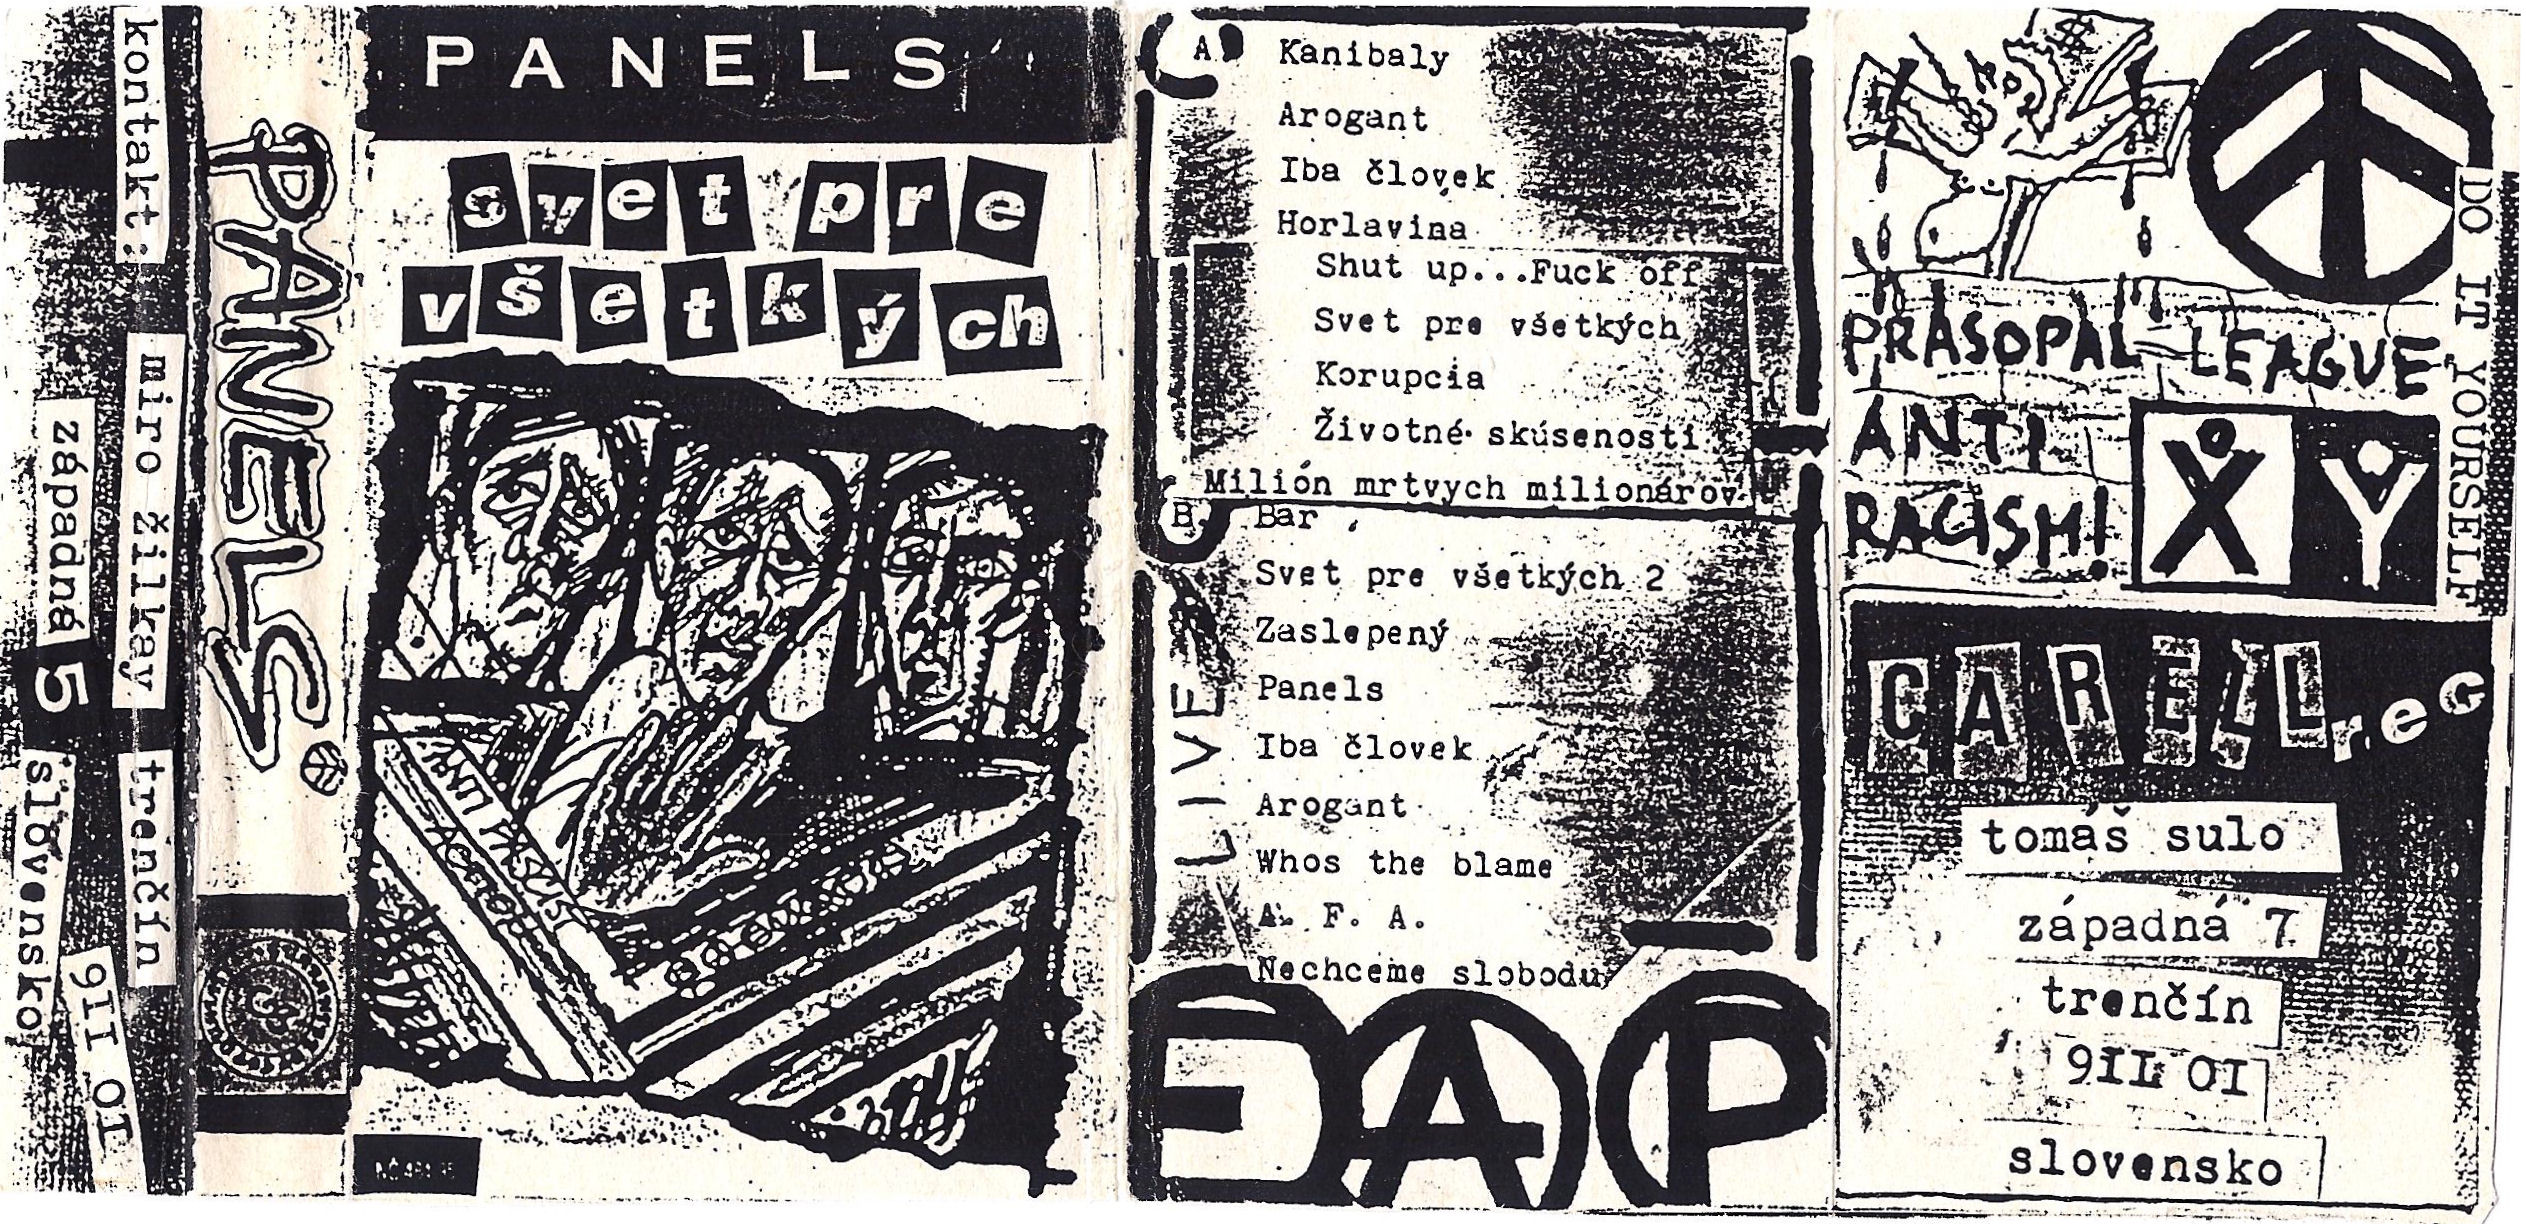 kontakt:
miro žilkay
západná 5
trenčín
911 01
slovensko
PANELS
PANELS
svet pre
všetkých
ANTI FASCIST
ACTION
A
Kanibaly
Arogant
Iba človek
Horlavina
Shut up...Fuck off
Svet pre všetkých
Korupcia
Životné skúsenosti
Milión mrtvych milionárov
B
LIVE
Bar
Svet pre všetkých 2
Zaslepený
Panels
Iba človek
Arogant
Whos the blame
A. F. A.
Nechceme slobodu
E A P
$
NO!
DO IT YOURSELF
PRASOPAL LEAGUE
ANTI
RACISM!
X Y
CARELL reG
tomáš sulo
západná 7
trenčín
911 01
slovensko